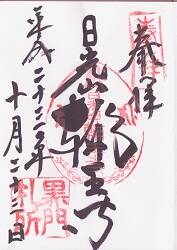 奉拝
日光山輪王寺
平成二十三年
十月二十三日
黒門
札所